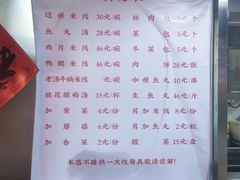 过桥米线 30元/碗 鲜肉包 5元/个
鱼丸汤 28元/碗 菜包 5元/个
鸡片米线 46元/碗 冬菜包 5元/个
鸭腿米线 46元/碗 肉饼 28元/张
老汤牛碗米线 元/碗 咖喱鱼丸 10元/串
桂花酸梅汤 15元/杯 生煎 28元/份
加紫菜 4元/份 另加米线 8元/份
加蘑菇 6元/份 另加鱼丸 2元/粒
加香菜 2元/份 酸菜 15元/盒
本店不提供一次性餐具敬请谅解!